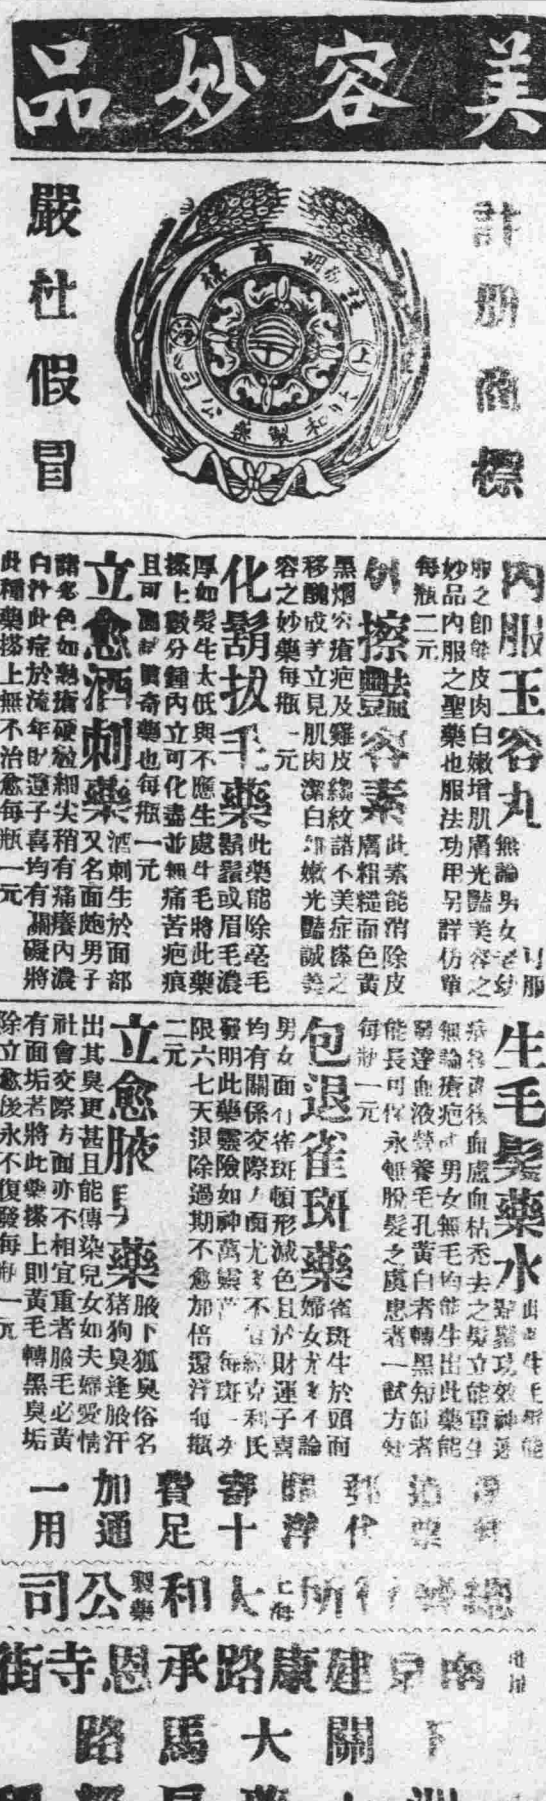 美容妙品
註册商標
嚴杜假冒
註册商標
大和製藥公司
內服玉容丸
無論男女老幼可服
服之即能皮肉白嫩增肌膚光豔美容之
妙品內服之聖藥也服法功用另詳仿單
每瓶二元
外擦豔容素
此素能消除皮
膚粗糙面色黃
黑烟容瘡疤及雞皮縐紋諸不美症搽之
移醜成美立見肌肉潔白細嫩光豔誠美
容之妙藥每瓶一元
化鬍拔毛藥
此藥能除毫毛
鬍鬚或眉毛濃
厚如髮生太低與不應生處生毛將此藥
搽上數分鐘內立可化盡並無痛苦疤痕
且可 奇藥也每瓶一元
立愈酒刺藥
酒刺生於面部
又名面皰男子
諸多色如熱瘡硬粒細尖稍有痛癢內濃
白汁此症於流年財運子喜均有關礙將
此種藥搽上無不治愈每瓶一元
生毛髮藥水
此 生毛髮能
鬚功效神速
病後血虛血枯禿去之髮立能重生
無論瘡疤 男女無毛均能生出此藥能
血液營養毛孔黃白者轉黑短 者
能長可保永無脫髮之虞患者一試方知
每瓶一元
包退雀斑藥
雀斑生於頭面
婦女尤多不論
男女面有雀斑頓形減色且於財運子喜
均有關係交際方面尤多不 經克利氏
發明此藥靈險如神萬靈 每斑一次
限六七天退除過期不愈加倍還洋每瓶
二元
立愈腋臭藥
腋下狐臭俗名
猪狗臭逢腋汗
出其臭更甚且能傳染兒女如夫婦愛情
社會交際方面亦不相宜重者腋毛必黃
有面垢若將此藥搽上則黃毛轉黑臭垢
除立愈後永不復發每瓶一元
郵 寄費加一
代洋十足通用
總發行所上海大和製藥公司
南京建康路承恩寺街
下關大馬路